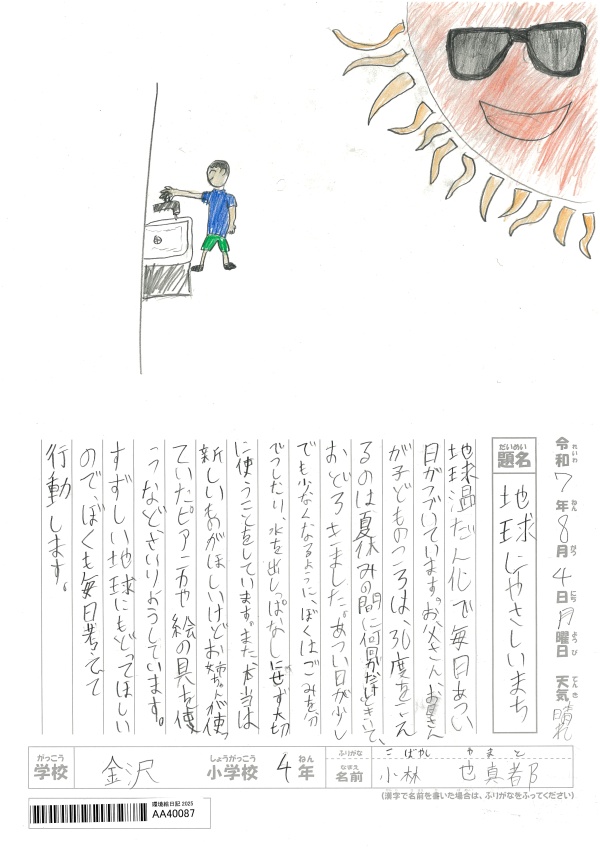 令和7年8月4日月曜日 天気 晴れ
れいわ ねん がつ にち ようび てんき
だいめい
題名 地球にやさしいまち
地球温だん化で毎日あつい
日がつづいています。お父さん、お母さん
が子どものころは、30度をこえ
るのは夏休みの間に何日かだけときいて、
おどろきました。あつい日が少し
でも少なくなるように、ぼくはごみを分
でつしたり、水を出しっぱなしにせず大切
に使うことをしています。また本当は
新しいものがほしいけどお姉ちゃんが使っ
ていたピアニカや絵の具を使
うなどさいりようしています。
すずしい地球にもどってほしい
ので、ぼくも毎日考えて
行動します。
がっこう しょうがっこう ねん ふりがな こばやし やまと
学校 金沢 小学校 4年 なまえ 名前 小林 也真都
(漢字で名前を書いた場合は、ふりがなをふってください)
環境絵日記 2025
AA40087